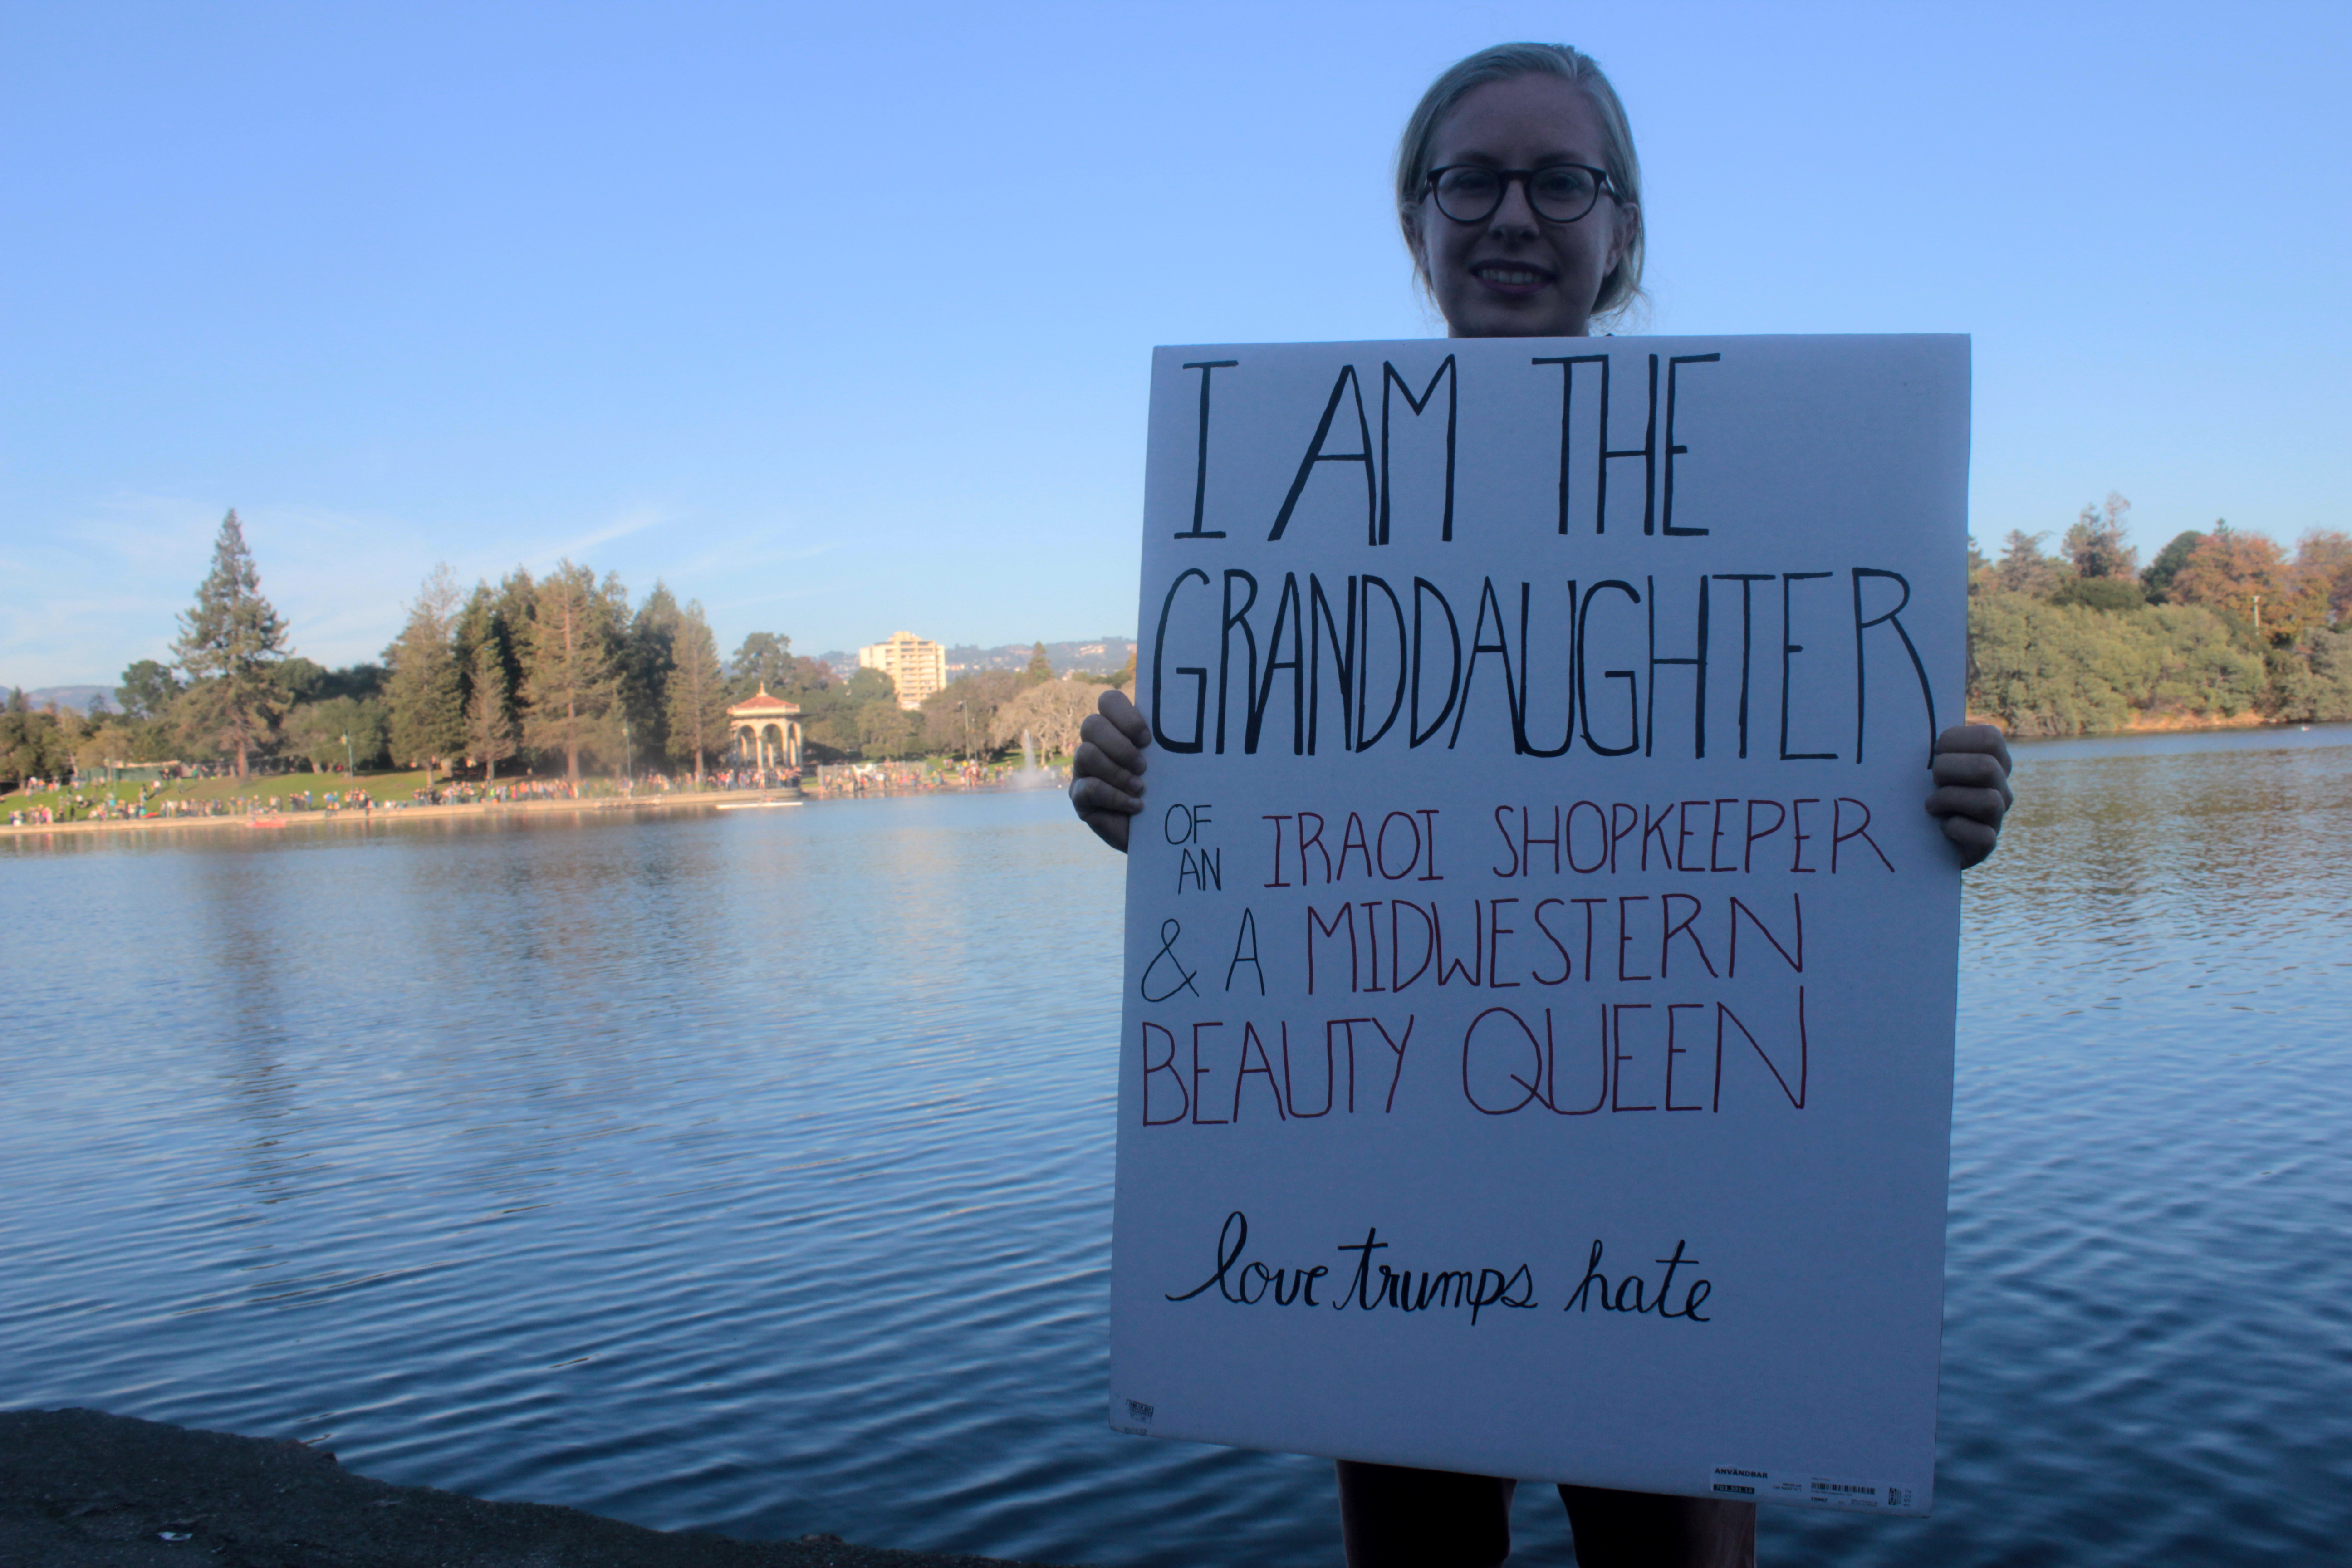 I AM THE
GRANDDAUGHTER
OF
AN IRAQI SHOPKEEPER
& A MIDWESTERN
BEAUTY QUEEN
love trumps hate
ANVÄNDBAR